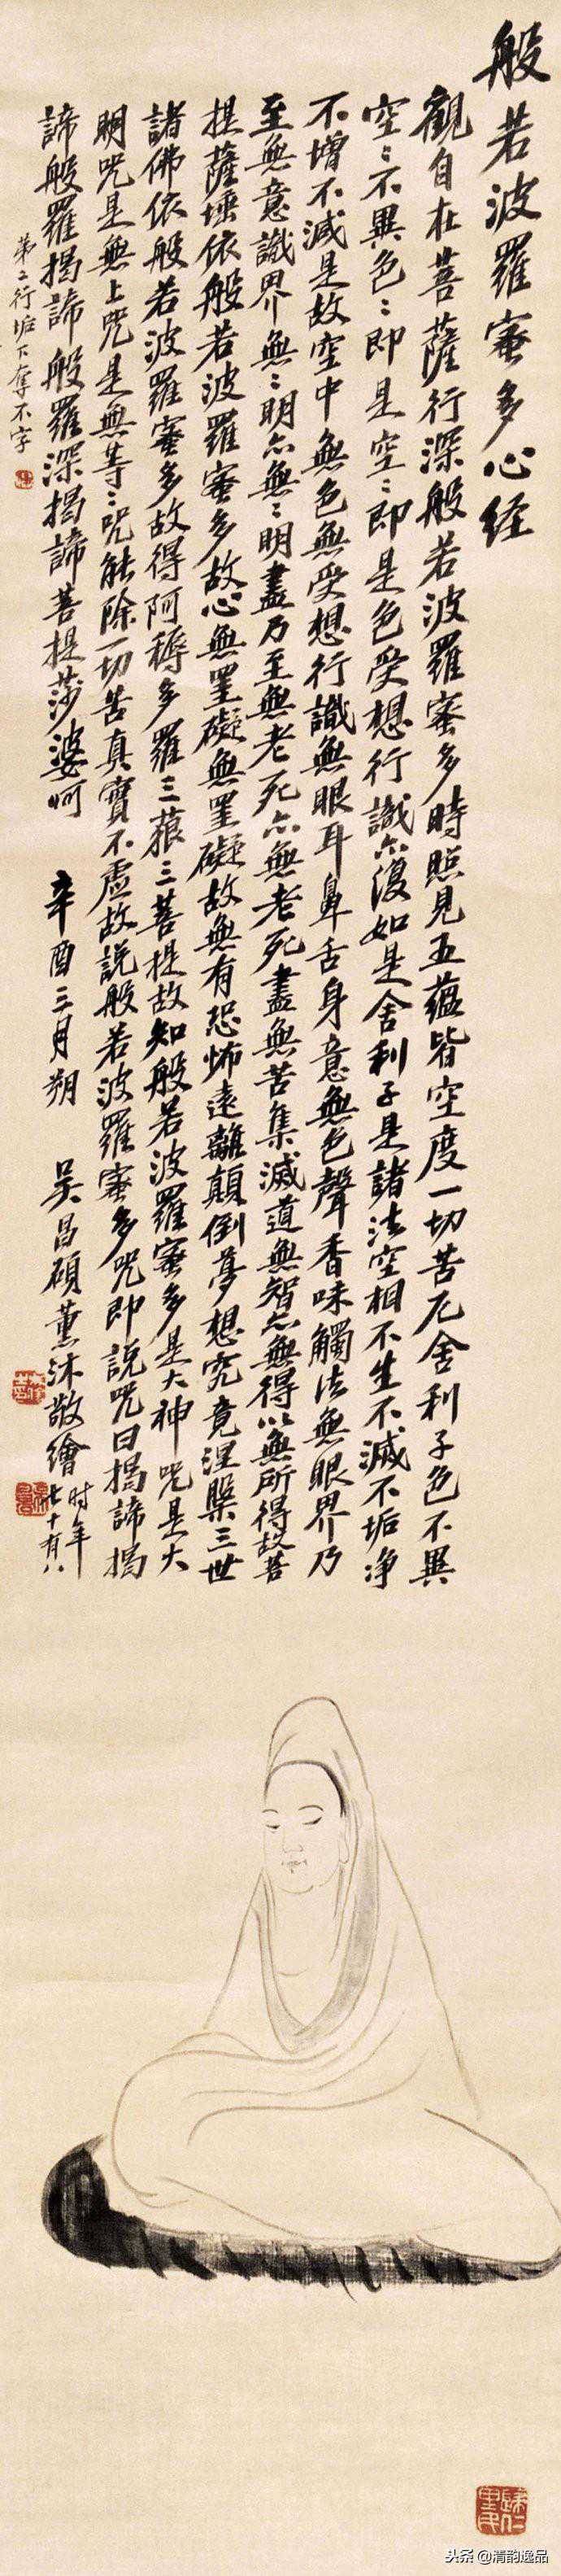 般若波羅蜜多心経
觀自在菩薩行深般若波羅蜜多時照見五蘊皆空度一切苦厄舍利子色不異
空〻不異色〻即是空〻即是色受想行識亦復如是舍利子是諸法空相不生不滅不垢净
不增不減是故空中無色無受想行識無眼耳鼻舌身意無色聲香味觸法無眼界乃
至無意識界無〻明亦無〻明盡乃至無老死亦無老死盡無苦集滅道無智亦無得以無所得故菩
提薩埵依般若波羅蜜多故心無罣礙無罣礙故無有恐怖遠離顛倒夢想究竟涅槃三世
諸佛依般若波羅蜜多故得阿耨多羅三藐三菩提故知般若波羅蜜多是大神咒是大
明咒是無上咒是無等〻咒能除一切苦真實不虛故説般若波羅蜜多咒即説咒曰揭諦揭
諦般羅揭諦般羅深揭諦菩提莎婆呵 辛酉三月朔 吴昌碩薰沐敬繪時年七十有八
第二行垢下奪不字
歸仁里民
头条 @清韵逸品